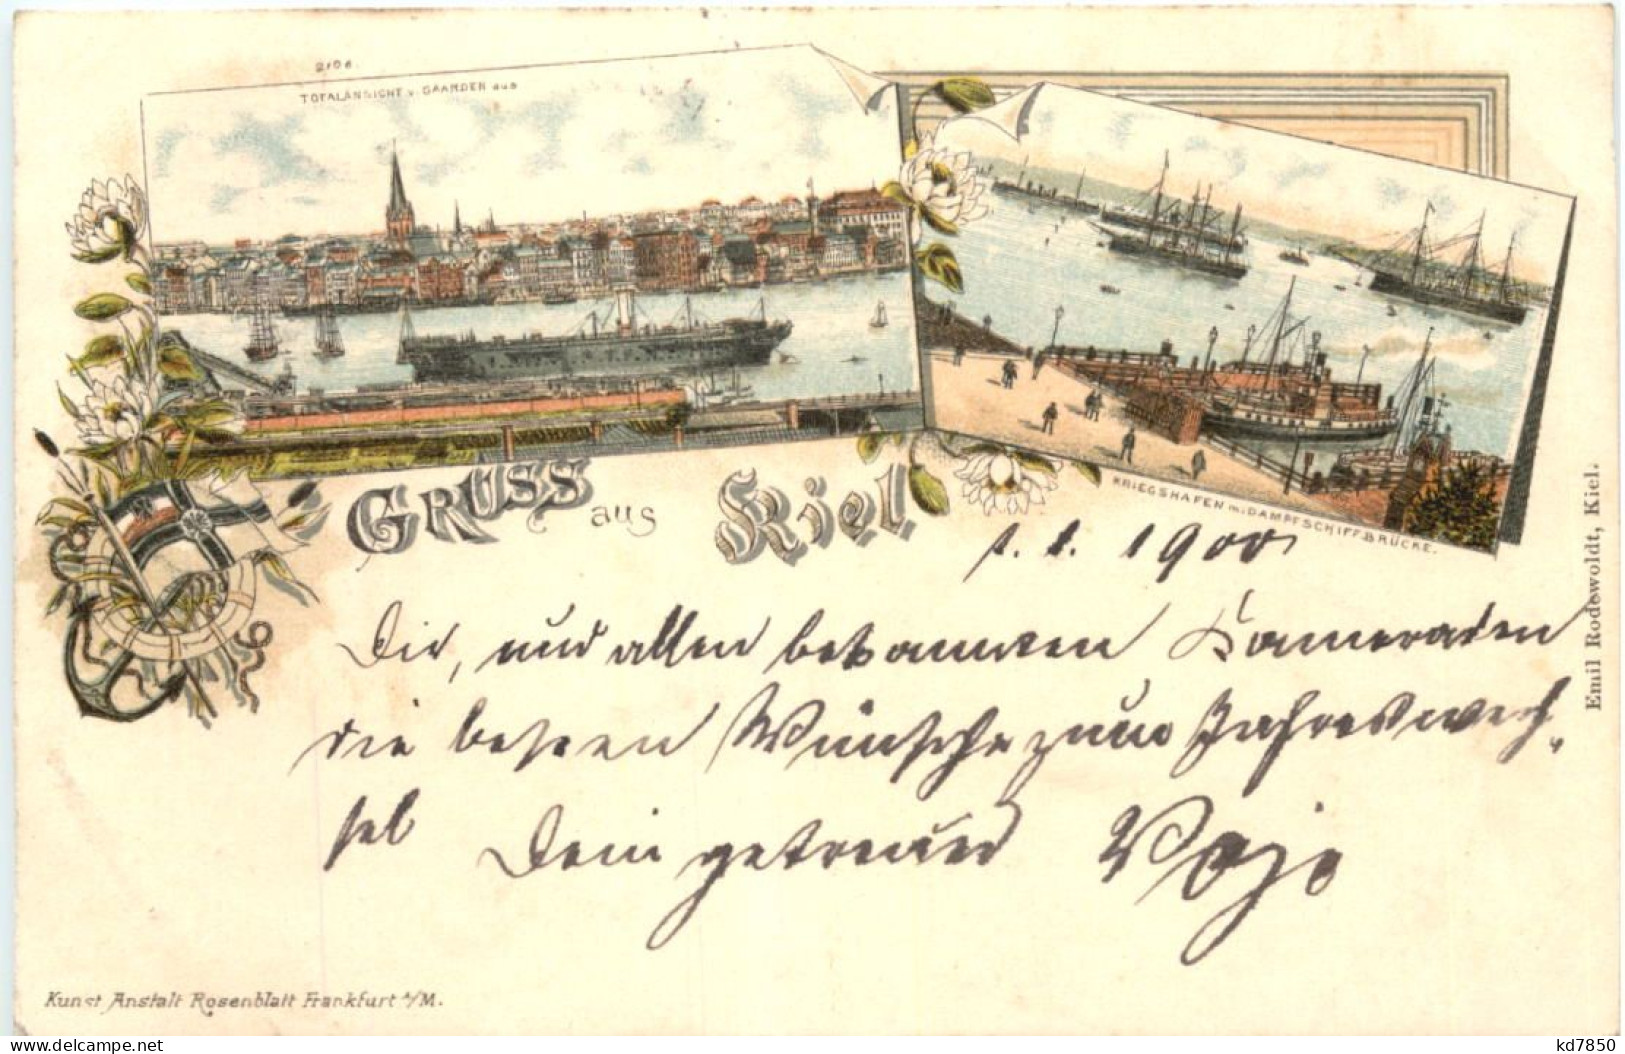 2106.
TOTALANSICHT v. GAARDEN aus
KRIEGSHAFEN m. DAMPFSCHIFF-BRÜCKE.
GRUSS aus Kiel
1. 1. 1900
Dir, und allen bekannten Kameraden
die besten Wünsche zum Jahreswech-
sel Dein getreuer
Emil Rodewoldt, Kiel.
Kunst Anstalt Rosenblatt Frankfurt A/M.
delcampe.net
kd7850